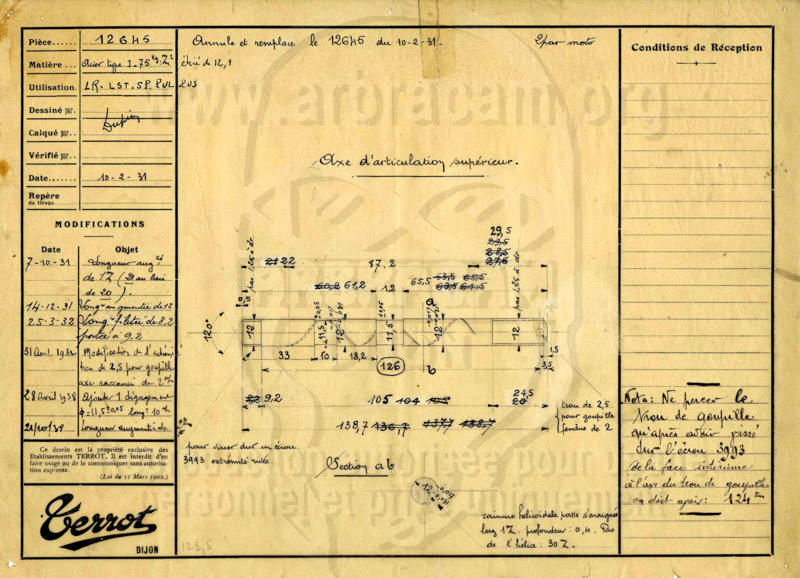 Pièce...... 12645
Matière... Acier type I-75
Utilisation. LR. LST. SP. PUL PUS
Dessiné par.
Calqué par..
Vérifié par..
Date....... 10-2-31
Repère
de tirage
MODIFICATIONS
Date Objet
7-10-31 Longueur aug
de 12 (
de 20).
14-12-31 Long augmentée de 12
25-3-32 Long filetée de 8,2
portée à 9,2
31 Aout 1932 Modification de
de 2,5 pour goupille
axe raccourci de 2
28 Avril 1938 Ajouter 1 dégagement
ϕ=11,5±0,05 long = 10
Longueur augmentée de
Ce dessin est la propriété exclusive des
Etablissements TERROT. Il est interdit d'en
faire usage ou de le communiquer sans autorisa-
tion expresse.
(Loi du 11 Mars 1902.)
Terrot
DIJON
Annule et remplace le 12645 du 10-2-31.
2 par moto
étiré de 12,1
www.arbracam.org
Axe d'articulation supérieur.
29,5
28,5
27,5
pas 125 à dr
21 22 87,2
60,2 61,2 12 65,5 63,5 65,5
120°
12 11,5 12 11,5 12 12
33 10 18,2 126 a b 1,5
3,5
8,2 9,2 105 104 105 24,5
20
138,7 136,7 137,7 138,7
trou de 2,5
pour goupille
fendue de 2
pour visser sur un écrou
3993 extrémité rivée.
Section ab
12
rainure hélicoïdale patte d'araignée
larg 12 - profondeur : 0,4. Pas
de l'hélice : 302.
123,5
Conditions de Réception
Nota: Ne percer le
trou de goupille
qu'après avoir vissé
sur l'écrou 3993
de la face intérieure
à l'axe du trou de goupille
on doit avoir : 124